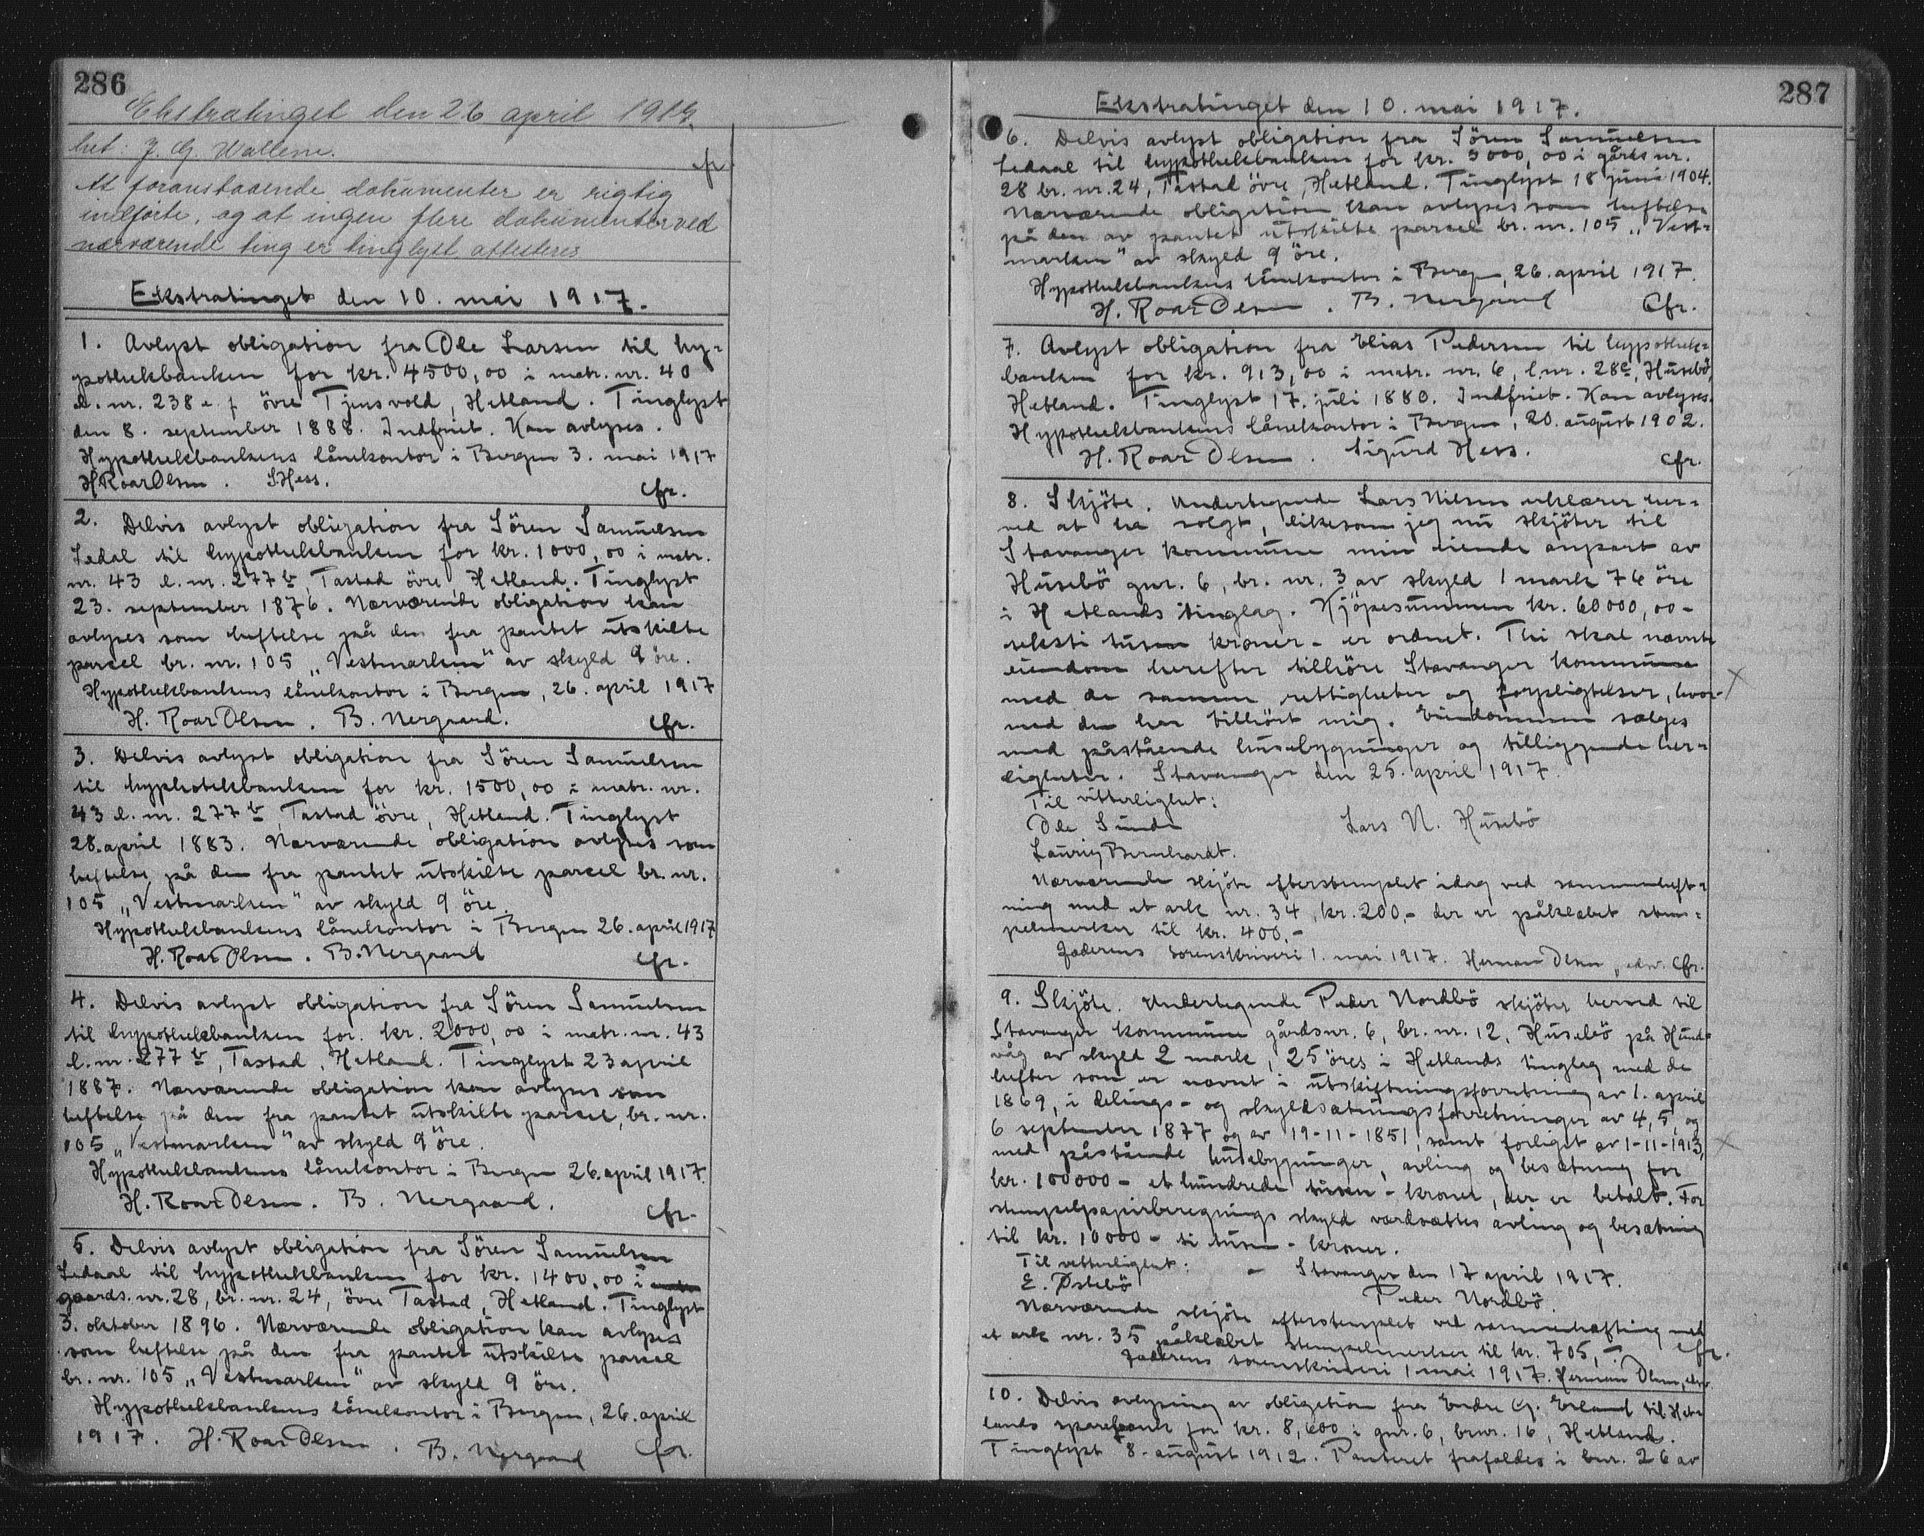 286
Ekstratinget den 26 april 1917.
het: J. G. Wallem.
cfr
At foranstaaende dokumenter er rigtig
indførte, og at ingen flere dokumenter ved
nærværende ting er tinglyst attesteres
Ekstratinget den 10. mai 1917.
1. Avlyst obligation fra Ole Larsen til hy-
pothekbanken for kr. 4500,00 i matr. nr. 40
l. nr. 238 övre Tjensvold, Hetland. Tinglyst
den 8. september 1888. Indfriet. Kan avlyses.
Hypothekbankens lånekontor i Bergen 3. mai 1917
H. Roar Olsen. S. Hess.
cfr.
2. Delvis avlyst obligation fra Sören Samuelsen
Ledal til hypothekbanken for kr. 1000,00 i matr.
nr. 43 l. nr. 277 b, Tastad övre, Hetland. Tinglyst
23. september 1876. Nærværende obligation kan
avlyses som heftelse på den fra pantet utskilte
parcel br. nr. 105 „Vestmarken" av skyld 9 öre.
Hypothekbankens lånekontor i Bergen, 26. april 1917
H. Roar Olsen. B. Nergaard.
cfr.
3. Delvis avlyst obligation fra Sören Samuelsen
til hyphotekbanken for kr. 1500,00 i matr. nr.
43 l. nr. 277 b, Tastad övre, Hetland. Tinglyst
28. april 1883. Nærværende obligation avlyses som
heftelse på den fra pantet utskilte parcel br. nr.
105 „Vestmarken" av skyld 9 öre.
Hypothekbankens lånekontor i Bergen 26. april 1917
H. Roar Olsen. B. Nergaard
cfr.
4. Delvis avlyst obligation fra Sören Samuelsen
til hypothekbanken for kr. 2000,00 i matr. nr. 43
l. nr. 277 b, Tastad, Hetland. Tinglyst 23 april
1887. Nærværende obligation kan avlyses som
heftelse på den fra pantet utskilte parcel, br. nr.
105 „Vestmarken" av skyld 9 öre.
Hypothekbankens lånekontor i Bergen 26. april 1917.
H. Roar Olsen. B. Nergaard.
cfr.
5. Delvis avlyst obligation fra Sören Samuelsen
Ledaal til hypothekbanken for kr. 1400,00 i
gaards. nr. 28, br. nr. 24, övre Tastad, Hetland. Tinglyst
3. oktober 1896. Nærværende obligation kan avlyses
som heftelse på den fra pantet utskilte parcel
br. nr. 105 „Vestmarken" av skyld 9 öre.
Hypothekbankens lånekontor i Bergen, 26. april
1917. H. Roar Olsen. B. Nergaard
cfr.
287
Ekstratinget den 10. mai 1917.
6. Delvis avlyst obligation fra Sören Samuelsen
Ledaal til hypothekbanken for kr. 3000,00 i gårds nr.
28 br. nr. 24, Tastad övre, Hetland. Tinglyst 18 juni 1904.
Nærværende obligation kan avlyses som heftelse
på den av pantet utskilte parcel br. nr. 105 „Vest-
marken" av skyld 9 öre.
Hypothekbankens lånekontor i Bergen, 26. april 1917.
H. Roar Olsen. B. Nergaard
Cfr.
7. Avlyst obligation fra Elias Pedersen til hypothek-
banken for kr. 913,00 i matr. nr. 6, l. nr. 28c, Husebö,
Hetland. Tinglyst 17. juli 1880. Indfriet. Kan avlyses.
Hypothekbankens lånekontor i Bergen, 20. august 1902.
H. Roar Olsen. Sigurd Hess.
cfr.
8. Skjöte. Undertegnede Lars Nilsen erklærer her-
ved at ha solgt, likesom jeg nu skjöter til
Stavanger kommune min eiende anpart av
Husebö gnr. 6, br. nr. 3 av skyld 1 mark 76 öre
i Hetlands tinglag. Kjöpesummen kr. 60000,00 -
seksti tusen kroner - er ordnet. Thi skal nævnte
eiendom herefter tilhöre Stavanger kommune
med de samme rettigheter og forpligtelser, hvor-
med den har tilhört mig. Eiendommen sælges
med påstående husebygninger og tilliggende her-
ligheter. Stavanger den 25. april 1917.
Til vitterlighet:
Ole Sunde
Lars N. Husebö
Lauritz Bernhardt.
Nærværende skjöte efterstemplet idag ved sammenheft-
ning med et ark nr. 34, kr. 200,- der er påklæbet stem-
pelmerker til kr. 400,-
Jæderens sorenskriveri 1. mai 1917. Herman Olsen, edsv. cfr.
9. Skjöte. Undertegnede Peder Nordbö skjöter herved til
Stavanger kommune gårdsnr. 6, br. nr. 12, Husebö på Hund-
våg av skyld 2 mark, 25 öre, i Hetlands tinglag med de
hefter som er nævnt i utskiftningsforretning av 1. april
1869, i delings- og skyldsætningsforretninger av 4, 5, og
6 september 1877 og av 19-11-1851, samt forliget av 1-11-1913,
med påstående husebygninger, avling og besætning for
kr. 100000 - et hundrede tusen - kroner, der er betalt. For
stempelpapirberegnings skyld værdsættes avling og besætning
til kr. 10000 - ti tusen - kroner.
Til vitterlighet: - Stavanger den 17 april 1917.
E. Östebö
Peder Nordbö.
Nærværende skjöte efterstemplet ved sammenhæftning med
et ark nr. 35 påklæbet stempelmerker til kr. 705,-. cfr.
Jæderens sorenskriveri 1 mai 1917. Herman Olsen, edsv
10. Delvis avlysning av obligation fra Endre G. Erland til Het-
lands sparebank for kr. 8,600 i gnr. 6, brnr. 16, Hetland.
Tinglyst 8. august 1912. Panteret frafaldes i bnr. 26 av